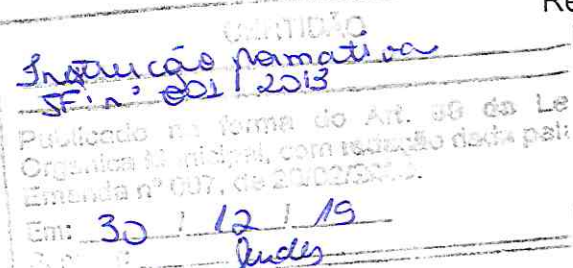 Re
CERTIDÃO
Instrução normativa
SF. nº 001 / 2013
Publicado na forma do Art. 98 da Le
Orgânica Municipal, com redação dada pela
Emenda nº 007, de
Em: 30 / 12 / 19